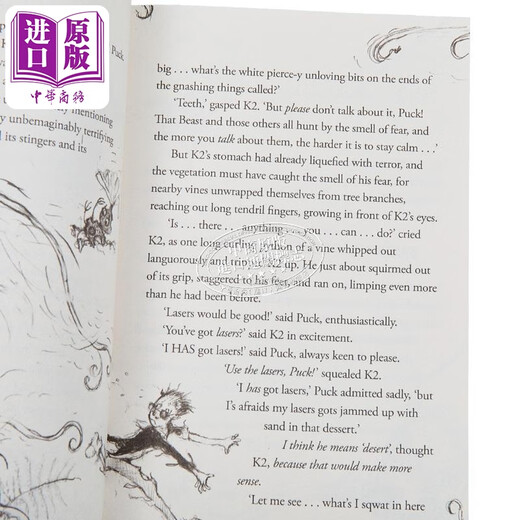 进口
原版
中華商務
Puck
mentioning
unbemaginably terrifying
its stingers and its
big . . . what's the white pierce-y unloving bits on the ends of
the gnashing things called?'
'Teeth,' gasped K2. 'But please don't talk about it, Puck!
That Beast and those others all hunt by the smell of fear, and
the more you talk about them, the harder it is to stay calm . . .'
But K2's stomach had already liquefied with terror, and
the vegetation must have caught the smell of his fear, for
nearby vines unwrapped themselves from tree branches,
reaching out long tendril fingers, growing in front of K2's eyes.
'Is . . . there . . . anything . . . you . . . can . . . do?' cried
K2, as one long curling python of a vine whipped out
languorously and tripped K2 up. He just about squirmed out
of its grip, staggered to his feet, and ran on, limping even more
than he had been before.
'Lasers would be good!' said Puck, enthusiastically.
'You've got lasers?' said K2 in excitement.
'I HAS got lasers!' said Puck, always keen to please.
'Use the lasers, Puck!' squealed K2.
'I has got lasers,' Puck admitted sadly, 'but
I's afraids my lasers got jammed up with
sand in that dessert.'
I think he means 'desert', thought
K2, because that would make more
sense.
'Let me see . . . what's I sqwat in here